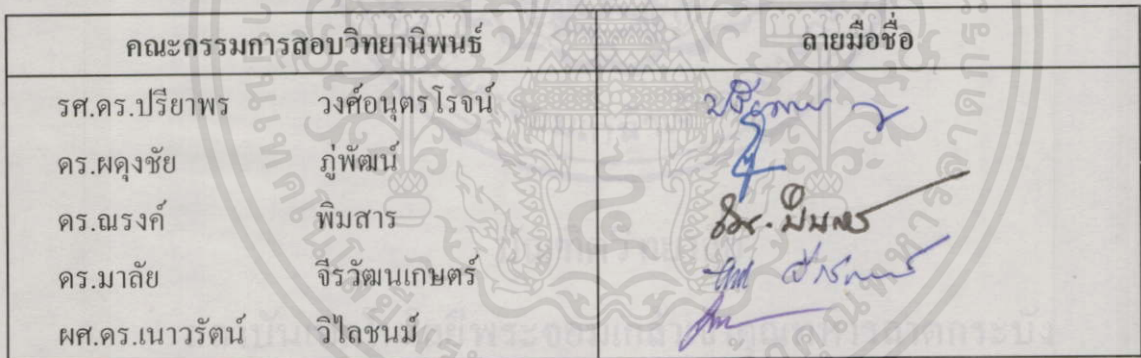 คณะกรรมการสอบวิทยานิพนธ์ ลายมือชื่อ
รศ.ดร.ปรียาพร วงศ์อนุตรโรจน์
ดร.ผดุงชัย ภู่พัฒน์
ดร.ณรงค์ พิมสาร
ดร.มาลัย จีรวัฒนเกษตร์
ผศ.ดร.เนาวรัตน์ วิไลชนม์